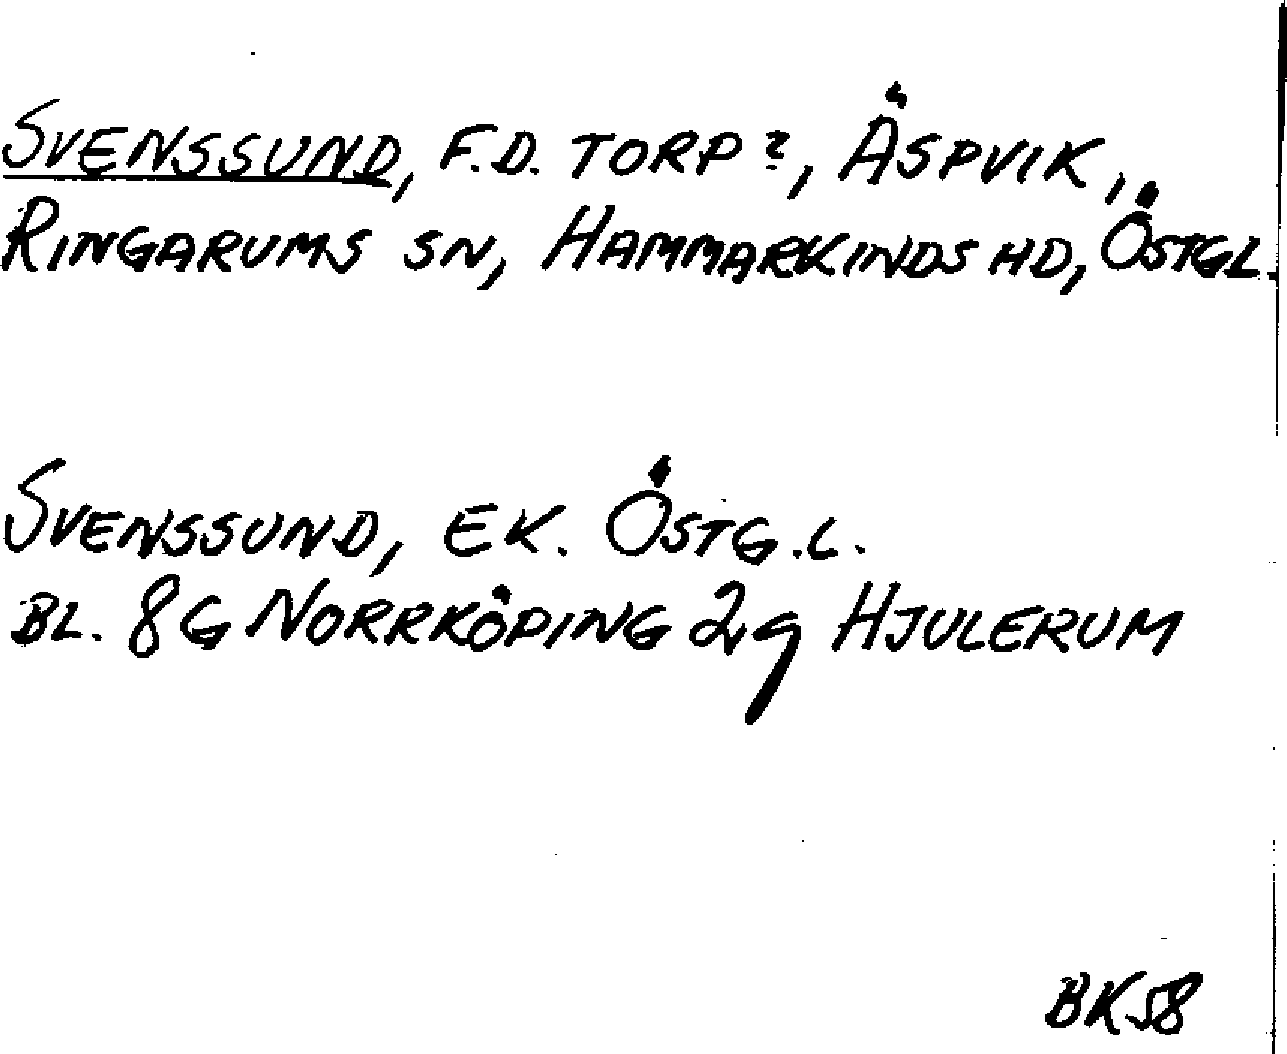 SVENSSUND, F.D. TORP?, ÄSPVIK,
RINGARUMS SN, HAMMARKINDS HD, ÖSTGL.
SVENSSUND, EK. ÖSTG.L.
BL. 8G NORRKÖPING 2g HJULERUM
BK58